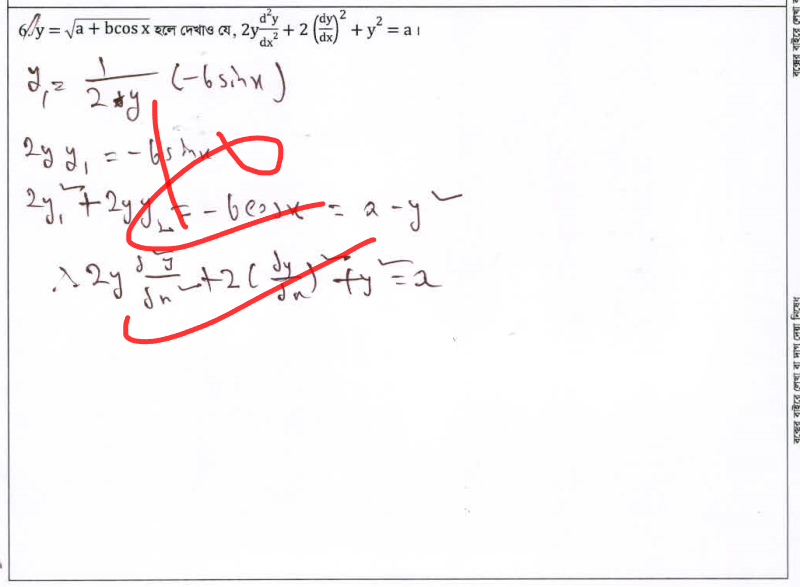 6. y = √(a + bcos x) হলে দেখাও যে, 2y d²y/dx² + 2 (dy/dx)² + y² = a।
y₁ = 1/(2y) (-b sinx)
2y y₁ = -b sinx
2y₁² + 2yy₂ = -b cosx = a - y²
∴ 2y d²y/dx² + 2(dy/dx)² + y² = a
বক্সের বাইরে লেখা বা দাগ দেয়া নিষেধ